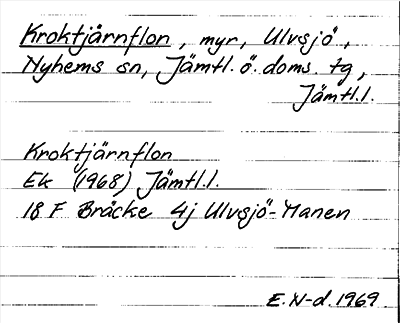 Kroktjärnflon, myr, Ulvsjö,
Nyhems sn, Jämtl. ö. doms. tg,
Jämtl.l.
Kroktjärnflon
Ek (1968) Jämtl.l.
18 F Bräcke 4j Ulvsjö-Manen
E.N-d. 1969